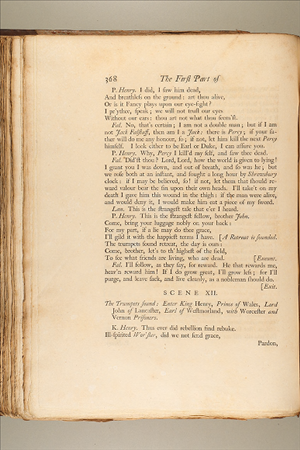 368 The First Part of
P. Henry. I did, I saw him dead,
And breathless on the ground: art thou alive,
Or is it Fancy plays upon our eye-sight?
I pr'ythee, speak; we will not trust our eyes
Without our ears: thou art not what thou seem'st.
Fal. No, that's certain; I am not a double man; but if I am
not Jack Falstaff, then am I a Jack: there is Percy; if your fa-
ther will do me any honour, so; if not, let him kill the next Percy
himself. I look either to be Earl or Duke, I can assure you.
P. Henry. Why, Percy I kill'd my self, and saw thee dead.
Fal. Did'st thou? Lord, Lord, how the world is given to lying!
I grant you I was down, and out of breath, and so was he; but
we rose both at an instant, and fought a long hour by Shrewsbury
clock: if I may be believed, so; if not, let them that should re-
ward valour bear the sin upon their own heads. I'll take't on my
death I gave him this wound in the thigh: if the man were alive,
and would deny it, I would make him eat a piece of my sword.
Lan. This is the strangest tale that e'er I heard.
P. Henry. This is the strangest fellow, brother John.
Come, bring your luggage nobly on your back:
For my part, if a lie may do thee grace,
I'll gild it with the happiest terms I have. [A Retreat is sounded.
The trumpets sound retreat, the day is ours:
Come, brother, let's to th' highest of the field,
To see what friends are living, who are dead. [Exeunt.
Fal. I'll follow, as they say, for reward. He that rewards me,
heav'n reward him! If I do grow great, I'll grow less; for I'll
purge, and leave sack, and live cleanly, as a nobleman should do.
[Exit.
SCENE XII.
The Trumpets sound: Enter King Henry, Prince of Wales, Lord
John of Lancaster, Earl of Westmorland, with Worcester and
Vernon Prisoners.
K. Henry. Thus ever did rebellion find rebuke.
Ill-spirited Wor'ster, did we not send grace,
Pardon,